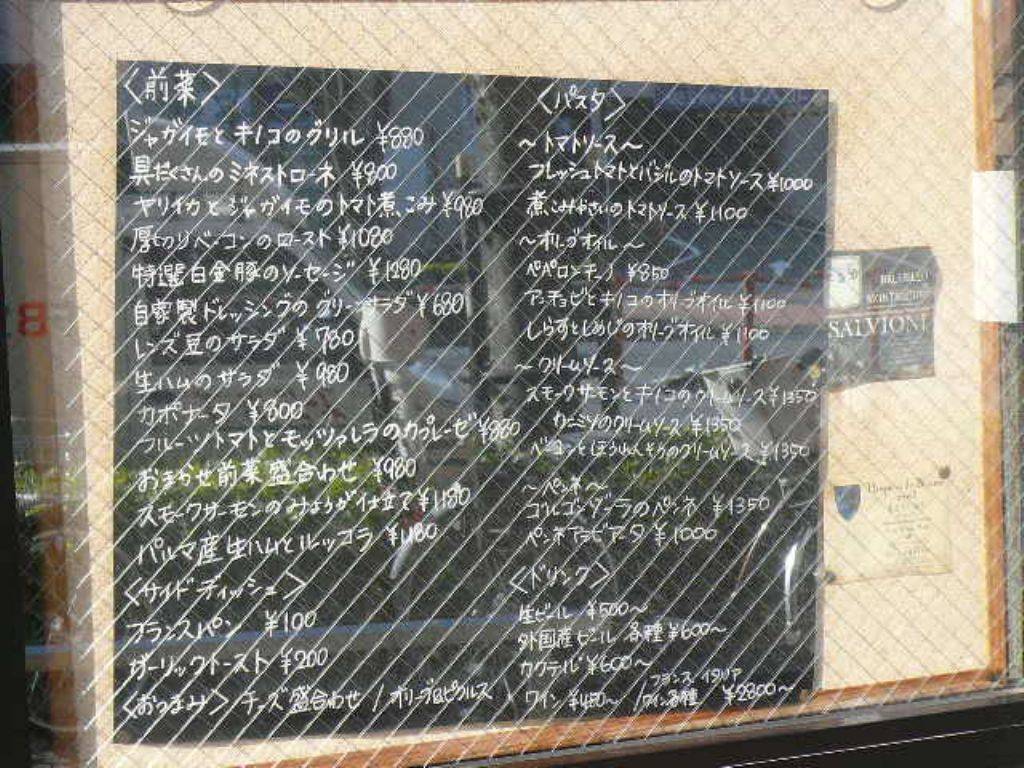 〈前菜〉
ジャガイモとキノコのグリル ¥880
具だくさんのミネストローネ ¥800
ヤリイカとジャガイモのトマト煮こみ ¥980
厚切りベーコンのロースト ¥1080
特選白金豚のソーセージ ¥1280
自家製ドレッシングのグリーンサラダ ¥680
レンズ豆のサラダ ¥780
生ハムのサラダ ¥980
カポナータ ¥800
フルーツトマトとモッツァレラのカプレーゼ ¥880
おまかせ前菜盛合わせ ¥980
スモークサーモンのみょうが仕立て ¥1180
パルマ産生ハムとルッコラ ¥1180
〈サイドディッシュ〉
フランスパン ¥100
ガーリックトースト ¥200
〈おつまみ〉 チーズ盛合わせ / オリーブ&ピクルス
〈パスタ〉
～トマトソース～
フレッシュトマトとバジルのトマトソース ¥1000
煮こみやさいのトマトソース ¥1100
～オリーブオイル～
ペペロンチーノ ¥850
アンチョビとキノコのオリーブオイル ¥1100
しらすとしめじのオリーブオイル ¥1100
～クリームソース～
スモークサーモンとキノコのクリームソース ¥1350
カニミソのクリームソース ¥1350
ベーコンとほうれんそうのクリームソース ¥1350
～ペンネ～
ゴルゴンゾーラのペンネ ¥1350
ペンネアラビアータ ¥1000
〈ドリンク〉
生ビール ¥500～
外国産ビール 各種 ¥600～
カクテル ¥600～
フランス・イタリア
ワイン ¥480～ / ワイン各種 ¥2800～
SALVIONI